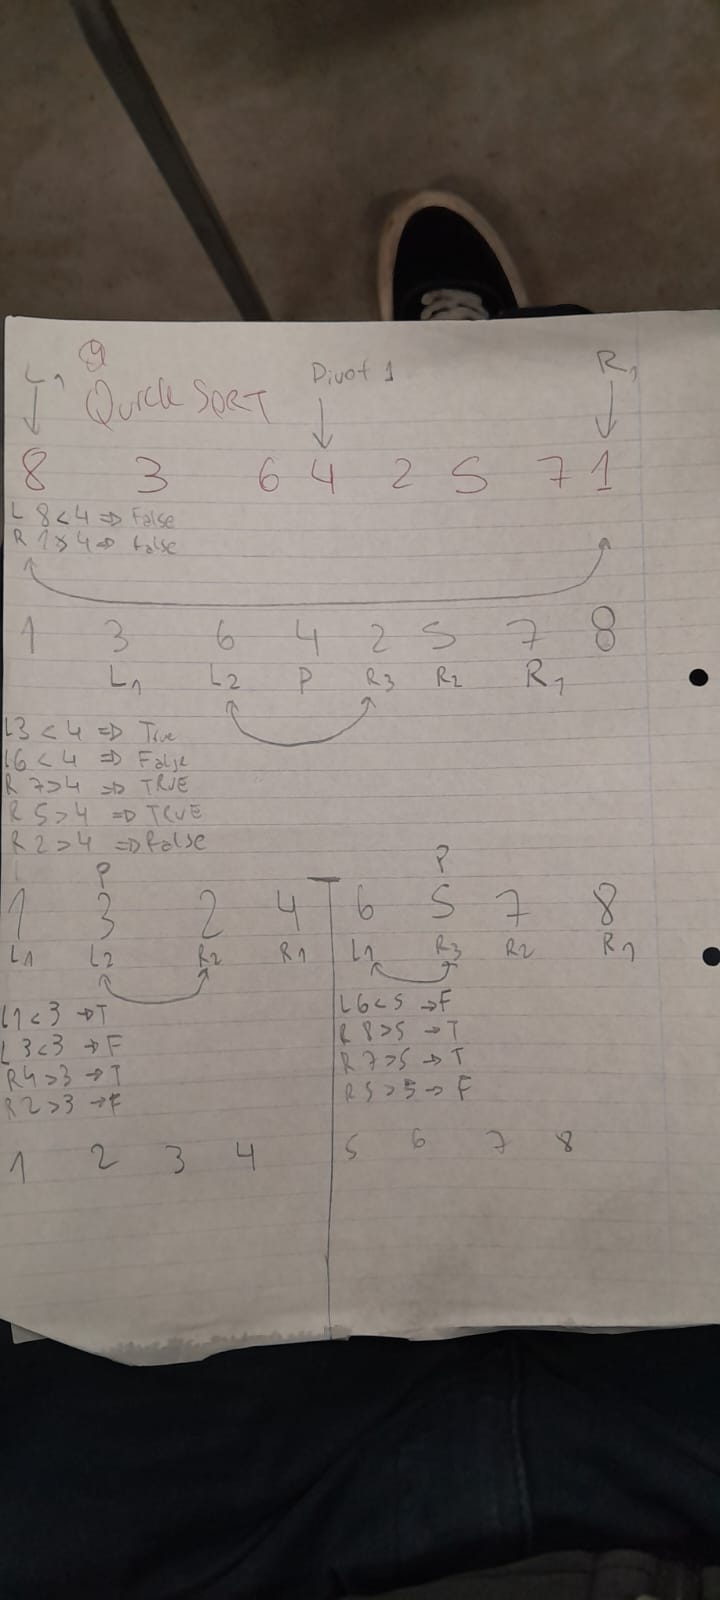 L1 Pivot 1 R1
Quick SORT
8 3 6 4 2 5 7 1
L 8<4 => False
R 1>4 => False
1 3 6 4 2 5 7 8
L1 L2 P R3 R2 R1
L3 < 4 => True
L6 < 4 => False
R 7>4 => TRUE
R 5>4 => TRUE
R 2>4 => False
P
1 3 2 4
L1 L2 R2 R1
L1<3 → T
L 3<3 → F
R4>3 → T
R2>3 → F
1 2 3 4
P
6 5 7 8
L1 R3 R2 R1
L6<5 → F
R 8>5 → T
R 7>5 → T
R5>5 → F
5 6 7 8